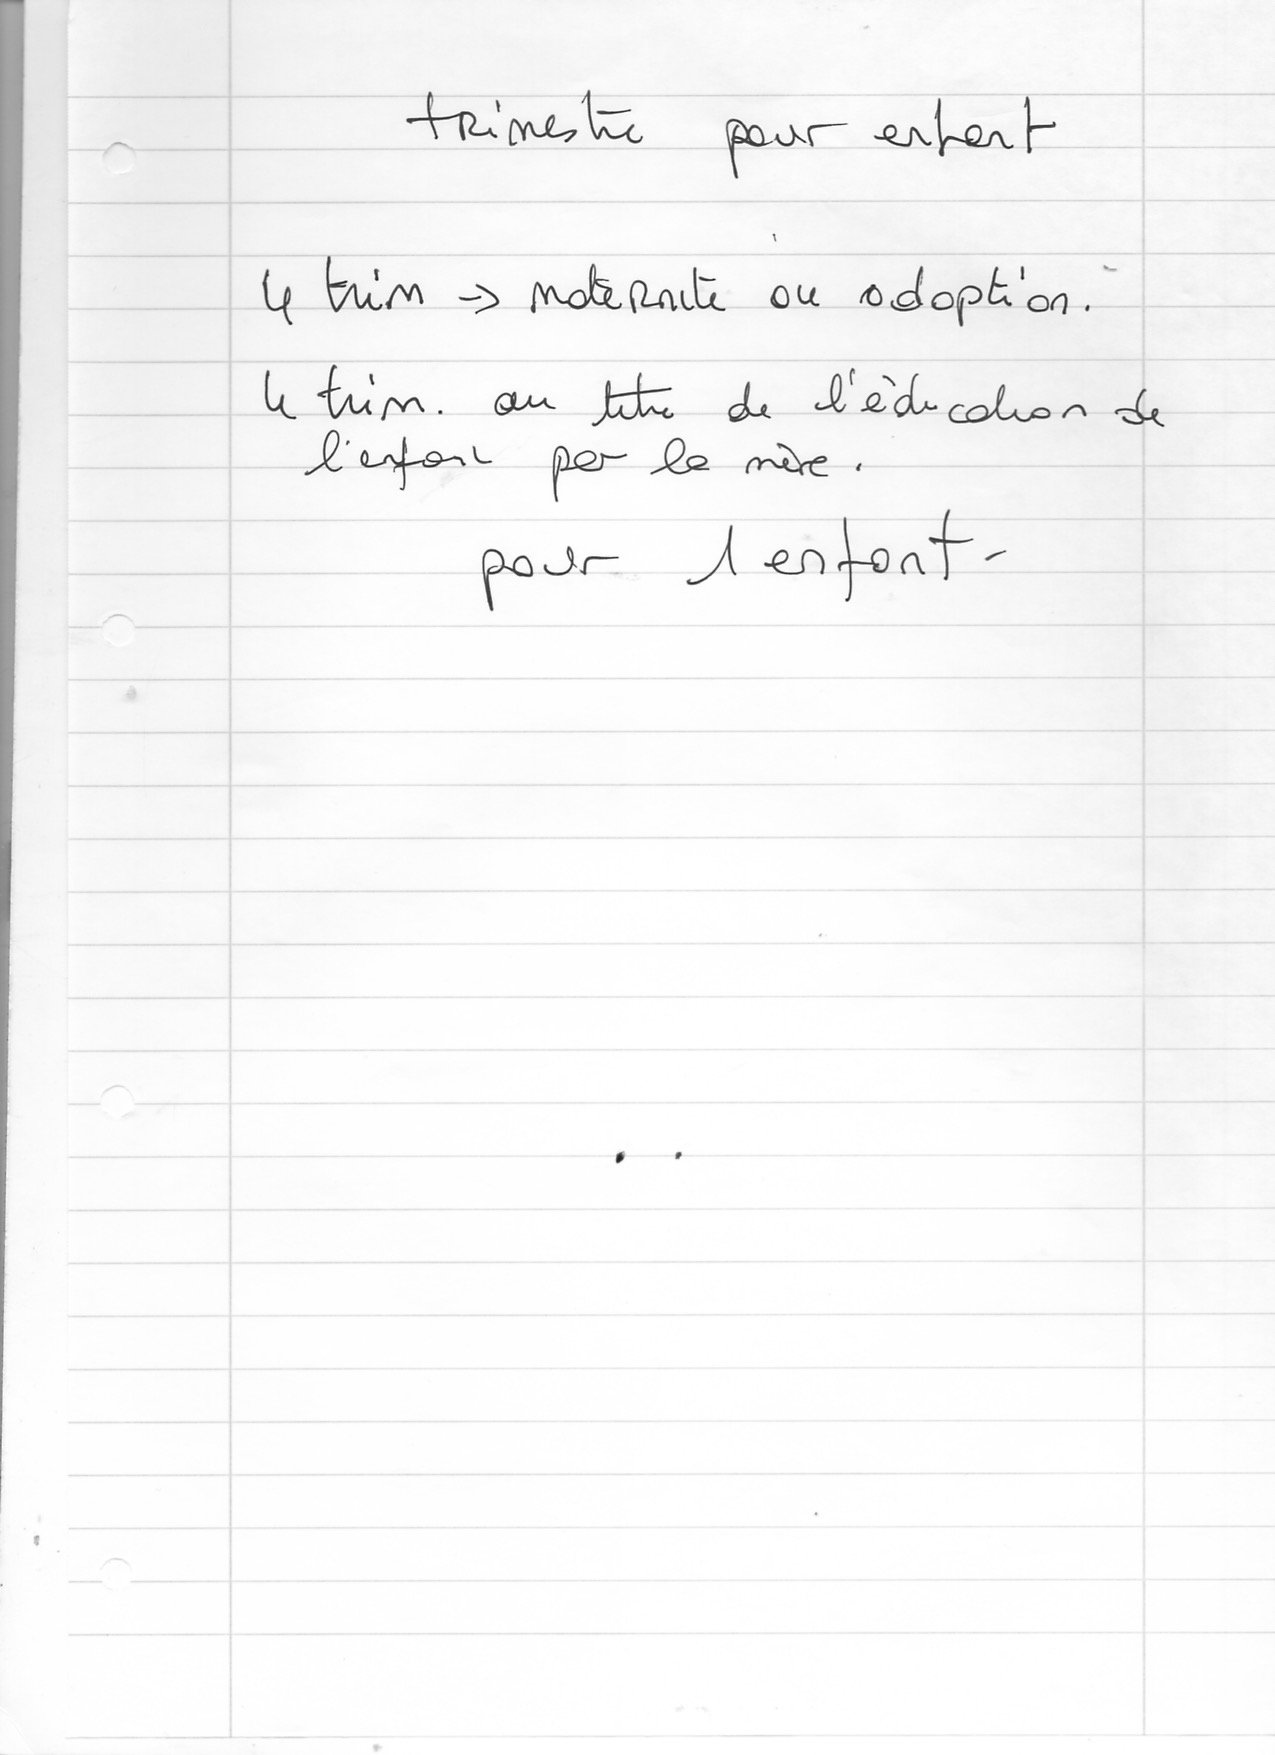 trimestre pour enfant
4 trim -> maternité ou adoption.
4 trim. au titre de l'éducation de
l'enfant par la mère.
pour 1 enfant -